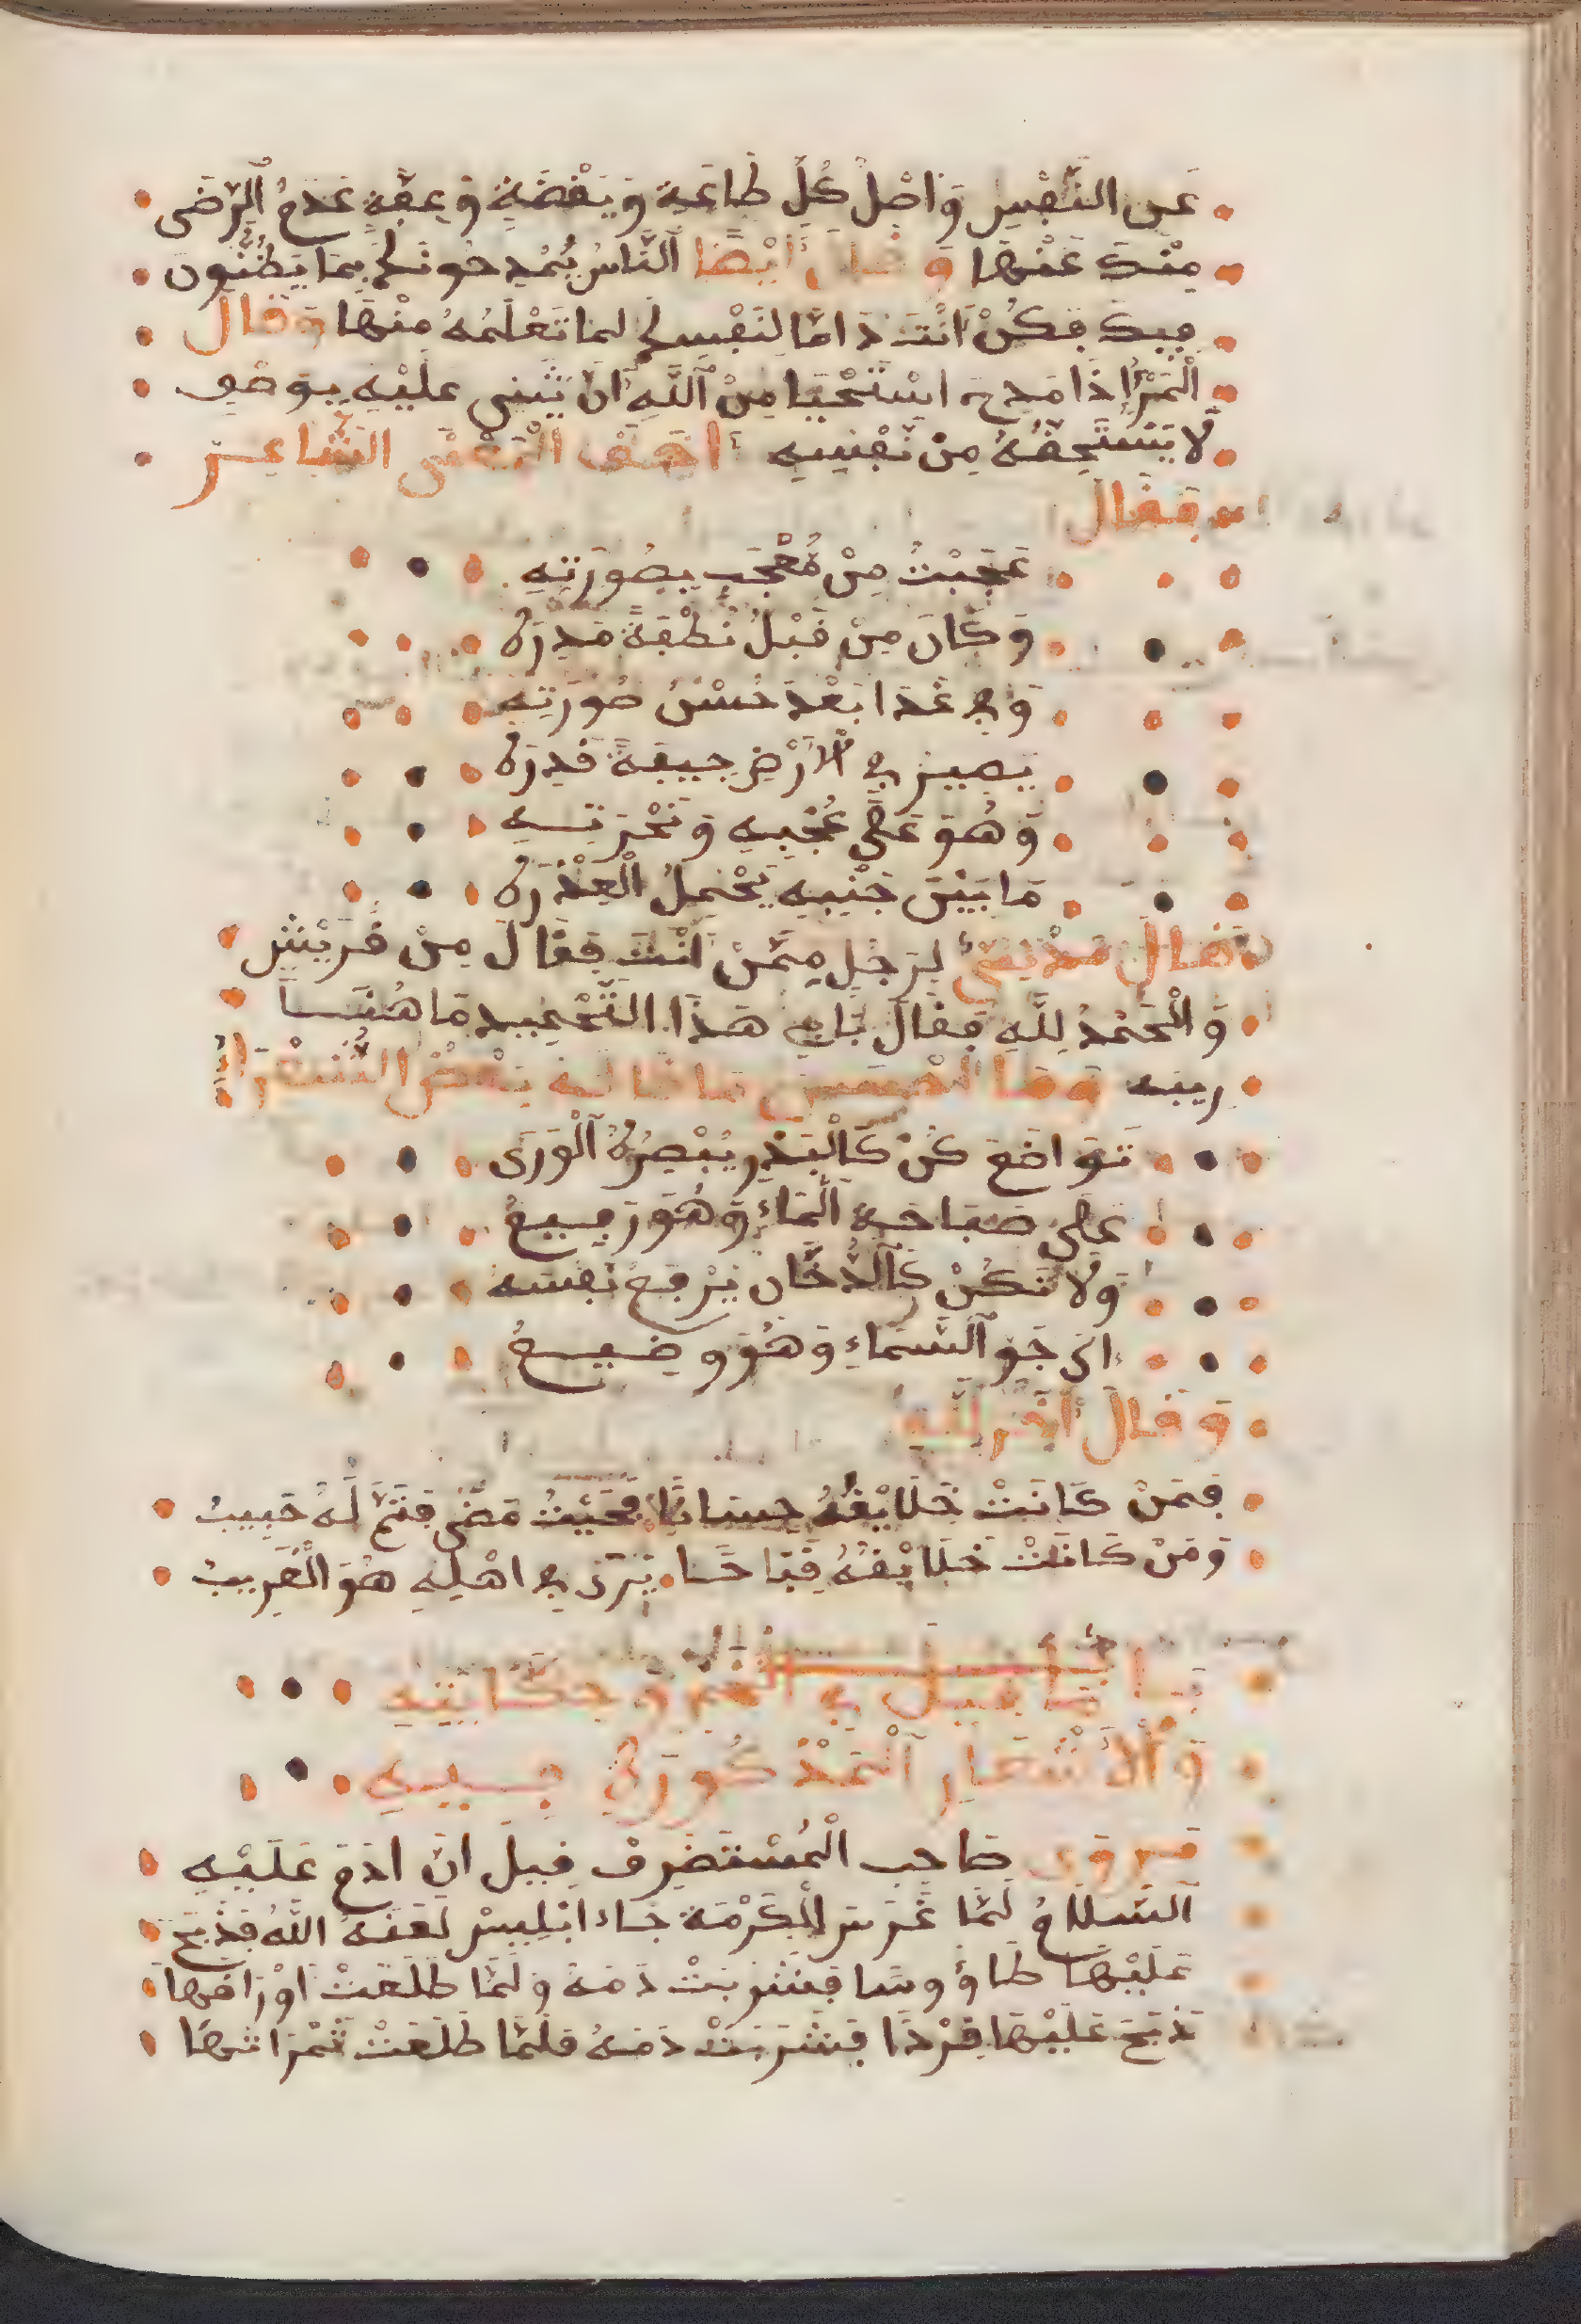 عَنِ النَّفْسِ وَاَصْلُ كُلِّ طَاعَةٍ وَيَقْضَةٍ وَعِفَّةٍ عَدَمُ الرِّضَى
مِنْكَ عَنْهَا وَقَالَ أَيْضًا النَّاسُ يُمْدِحُونَكَ بِمَا يَظُنُّونَ
فِيكَ فَكُنْ أَنْتَ ذَامًّا لِنَفْسِكَ لِمَا تَعْلَمُهُ مِنْهَا وَقَالَ
الْمَرْءُ إِذَا مَدِحَ اسْتَحْيَا مِنَ اللَّهِ أَنْ يُثْنِي عَلَيْهِ بِوَصْفٍ
لَا يَسْتَحِقُّهُ مِنْ نَفْسِهِ الْمَعْنَى الشَّاعِرُ
فَقَالَ
عَجِبْتُ مِنْ مُعْجَبٍ بِصُورَتِهِ
وَكَانَ مِنْ قَبْلُ نُطْفَةً مَذِرَهْ
وَفِي غَدَا بَعْدَ حُسْنِ صُورَتِهِ
يَصِيرُ فِي الْأَرْضِ جِيفَةً قَذِرَهْ
وَهُوَ عَلَى عُجْبِهِ وَنَخْرَتِهِ
مَا بَيْنَ جَنْبَيْهِ يَحْمِلُ الْعِذْرَهْ
وَقَالَ لِرَجُلٍ مِمَّنْ أَنْتَ فَقَالَ مِنْ قُرَيْشٍ
وَالْحَمْدُ لِلَّهِ فَقَالَ بَابِي هَذَا التَّحْمِيدِ مَا هُنَا
رِيبَه وَمَا أَحْسَنَ مَا قَالَهُ بَعْضُ الشُّعَرَاءِ
تَوَاضَعْ كُنْ كَالْبَدْرِ يُبْصِرُهُ الْوَرَى
عَلَى صَفَاحَةِ الْمَاءِ وَهُوَ رَفِيعُ
وَلَا تَكُنْ كَالدُّخَّانِ يَرْفَعُ نَفْسَهُ
إِلَى جَوِّ السَّمَاءِ وَهُوَ وَضِيعُ
وَقَالَ آخَرُ
فَمَنْ كَانَتْ خَلَايِقُهُ حِسَانًا فَحَيْثُ مَضَى فَثَمَّ لَهُ حَبِيبُ
وَمَنْ كَانَتْ خَلَايِقُهُ قِبَاحًا يُرَى فِي اهْلِهِ هُوَ الْغَرِيبُ
مَا قِيلَ فِي الْخَمْرِ وَحِكَايَتِهِ
وَالْأَشْعَارِ الْمَذْكُورَةِ فِيهِ
فَرَوَى صَاحِبُ الْمُسْتَضْرِفِ قِيلَ انَّ ادَمَ عَلَيْهِ
السَّلَامُ لَمَّا غَرَسَ الْكَرْمَةَ جَاءَ ابْلِيسُ لَعَنَهُ اللَّهُ فَذَبَحَ
عَلَيْهَا طَاؤُوسًا فَشَرِبَتْ دَمَهُ وَلَمَّا طَلَعَتْ أَوْرَاقُهَا
ذَبَحَ عَلَيْهَا قِرْدًا فَشَرِبَتْ دَمَهُ فَلَمَّا طَلَعَتْ ثَمْرَاتُهَا